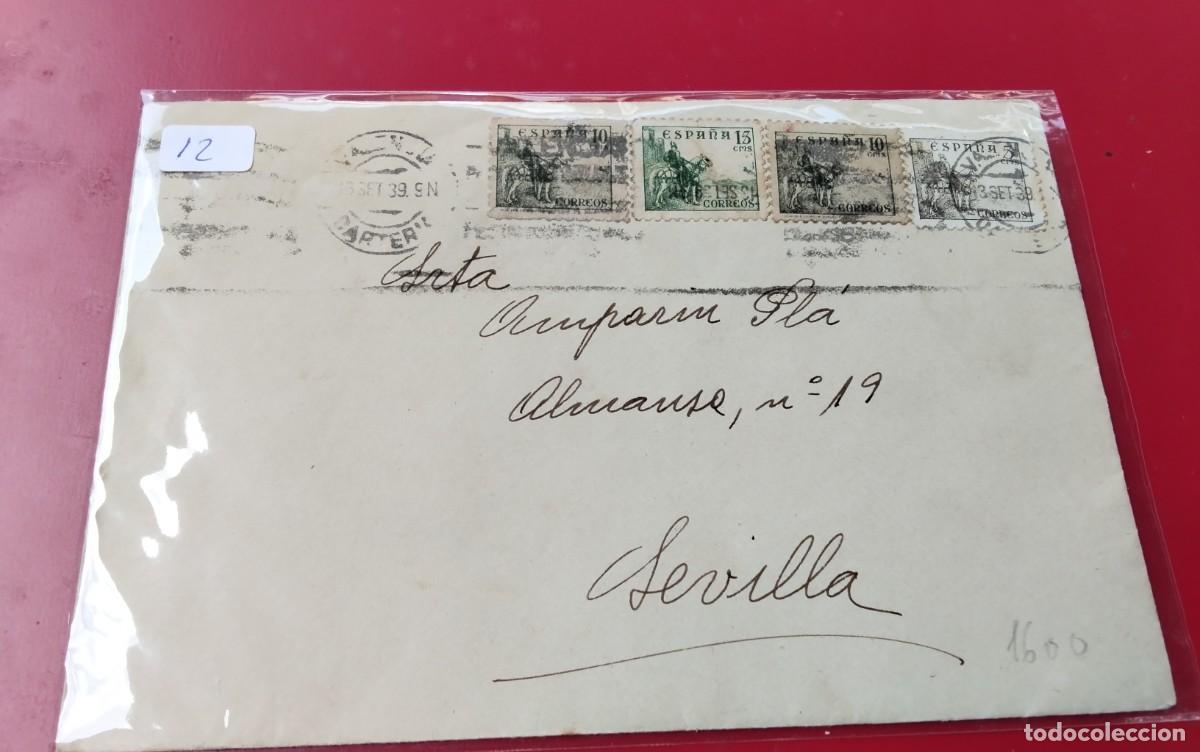 12
13 SET 39. 9N
ESPAÑA 10
CORREOS
ESPAÑA 15 CMS
CORREOS
ESPAÑA 10 CMS
CORREOS
CORREOS
13 SET 39
Srta
Amparin Plá
Almansa, nº 19
Sevilla
1600
todocoleccion